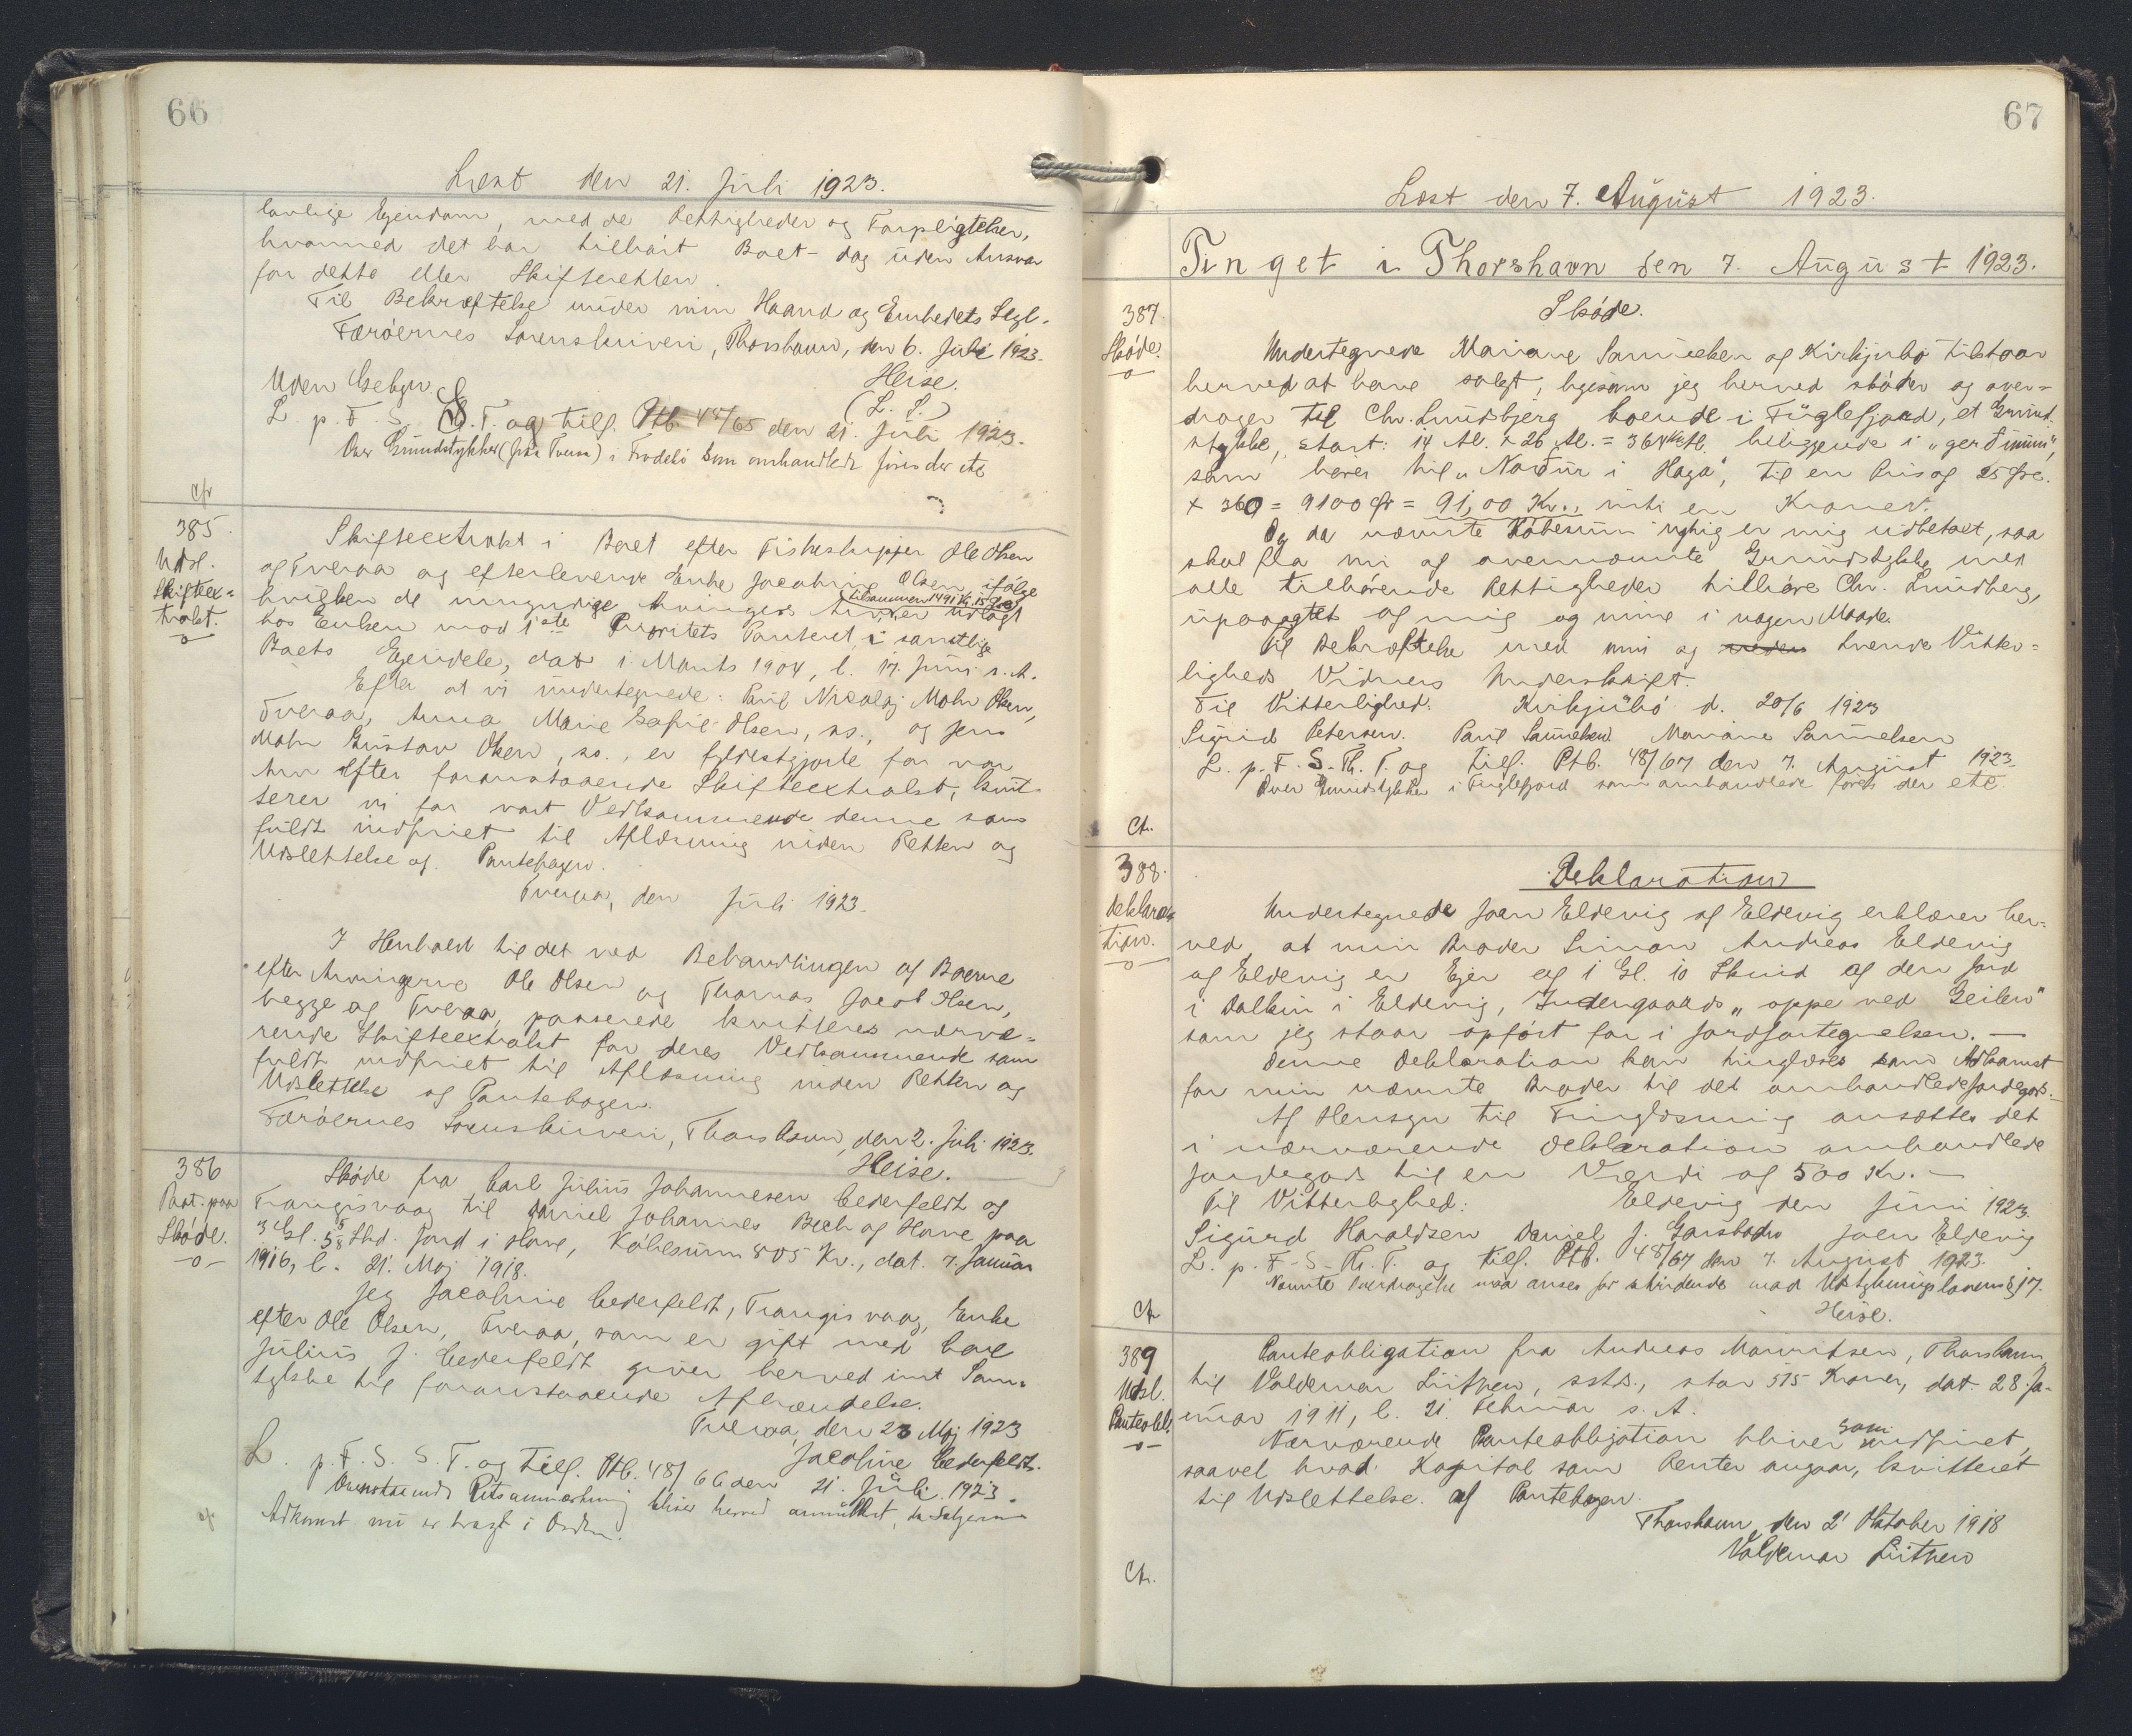 66
Læst den 21. Juli 1923.
lovlige Ejendom, med de Rettigheder og Forpligtelser,
hvormed det har tilhört Boet - dog uden Ansvar
for dette eller Skifteretten.
Til Bekræftelse under min Haand og Embedets Segl.
Færöernes Sorenskriveri, Thorshavn, den 6. Juli 1923.
Heise.
Uden Gebyr. (L. S.)
L. p. F. S. S. T. og tilf. Ptb. 48/65 den 21. Juli 1923.
Over Grundstykket (fra Tvera) i Frodebö som omhandlede föres der etc
cfr
385.
Udsl.
Skifteex=
trakt.
Skifteextrakt i Boet efter Fiskeskipper Ole Olsen
af Tveraa og efterlevende Enke Jacobine Olsen, ifölge
hvilken de umyndige Arvingers Arv, tilsammen 1491 Kr. 15 Øre er udlagt
hos Enken mod 1ste Prioritets Panteret i samtlige
Boets Ejendele, dat i Marts 1904, l. 17. Juni s. A.
Efter at vi undertegnede: Poul Nicolaj Mohr Olsen,
Tveraa, Anna Marie Sofie Olsen, ss., og Jens
Mohr Gustav Olsen, ss., er fyldestgjorte for vor
Arv efter foranstaaende Skifteextrakt, kvit-
terer vi for vort Vedkommende denne som
fuldt indfriet til Aflæsning inden Retten og
Udslettelse af Pantebogen.
Tveraa, den Juli 1923.
I Henhold til det ved Behandlingen af Boerne
efter Arvingerne Ole Olsen og Thomas Jacob Olsen,
begge af Tveraa, passerede kvitteres nærvæ=
rende Skifteextrakt for deres Vedkommende som
fuldt indfriet til Aflæsning inden Retten og
Udslettelse af Pantebogen.
Færöernes Sorenskriveri, Thorshavn, den 2. Juli 1923.
Heise.
386
Paat. paa
Skøde.
Sköde fra Carl Julius Johannesen Cederfeldt af
Trangisvaag til Daniel Johannes Bech af Hove paa
3 Gl. 5 5/8 Skd. Jord i Hove, Köbesum 805 Kr., dat. 7. Januar
1916, l. 21. Maj 1918.
Jeg Jacobine Cederfeldt, Trangisvaag, Enke
efter Ole Olsen, Tveraa, som er gift med Carl
Julius J. Cederfeldt giver herved mit Sam-
tykke til foranstaaende Afhændelse.
Tveraa, den 23 Maj 1923
Jacobine Cederfeldt.
L. p. F. S. S. T. og tilf. Ptb. 48/66 den 21. Juli 1923.
Ovenstaaende Retsanmærkning bliver herved annulleret, da Sælgerens
Adkomst nu er bragt i Orden.
cfr
67
Læst den 7. August 1923.
Tinget i Thorshavn den 7. August 1923.
387.
Sköde.
Sköde.
Undertegnede Mariane Samuelsen af Kirkjubö tilstaar
herved at have solgt, ligesom jeg herved sköder og over=
drager til Chr. Lundsbjerg boende i Fuglefjord, et Grund-
stykke, stort: 14 Al. x 26 Al. = 364 □ Al. beliggende i "gerðinum",
som hører til "Norður i Haga", til en Pris af 25 Øre.
x 360 = 9100 Ør = 91,00 Kr., niti en Kroner.
Og da nævnte Köbesum rigtig er mig udbetalt, saa
skal fra nu af ovennævnte Grundstykke med
alle tilhörende Rettigheder tilhöre Chr. Lundberg,
upaaagtet af mig og mine i nogen Maade.
Til Bekræftelse med min og tvende Vitter=
ligheds Vidners Underskrift.
Til Vitterlighed: Kirkjubö d. 20/6 1923
Sigrid Petersen. Poul Samuelsen Mariane Samuelsen
L. p. F. S. Th. T. og tilf. Ptb. 48/67 den 7. August 1923.
Over Grundstykket i Fuglefjord som omhandlede föres der etc.
Cfr.
388.
Deklara=
tion.
Deklaration
Undertegnede Joen Eldevig af Eldevig erklærer her=
ved, at min Broder Simon Andreas Eldevig
af Eldevig er Ejer af 1 Gl. 10 Skind af den Jord
i Dalkin i Eldevig, Indengaards "oppe ved Geilen"
som jeg staar opfört for i Jordfortegnelsen. —
Denne Deklaration kan tinglæses som Adkomst
for min nævnte Broder til det omhandlede Jordegods.
Af Hensyn til Tinglæsning ansættes det
i nærværende Deklaration omhandlede
Jordegods til en Værdi af 500 Kr. —
Til Vitterlighed: Eldevig den Juni 1923.
Sigurd Haraldsen Daniel J. Garsbodn Joen Eldevig
L. p. F. S. Th. T. og tilf. Ptb. 48/67 den 7. August 1923.
Nævnte Overdragelse maa anses for stridende mod Udstykningslovens § 17.
Heise.
Cfr
389
Udsl.
Panteobl.
Panteobligation fra Andreas Mouritsen, Thorshavn
til Valdemar Lützen, sstds., stor 575 Kroner, dat. 28. Ja-
nuar 1911, l. 21. Februar s. A.
Nærværende Panteobligation bliver som indfriet,
saavel hvad Kapital som Renter angaar, kvitteret
til Udslettelse af Pantebogen.
Thorshavn, den 2' Oktober 1918
Valdemar Lützen
Cfr.